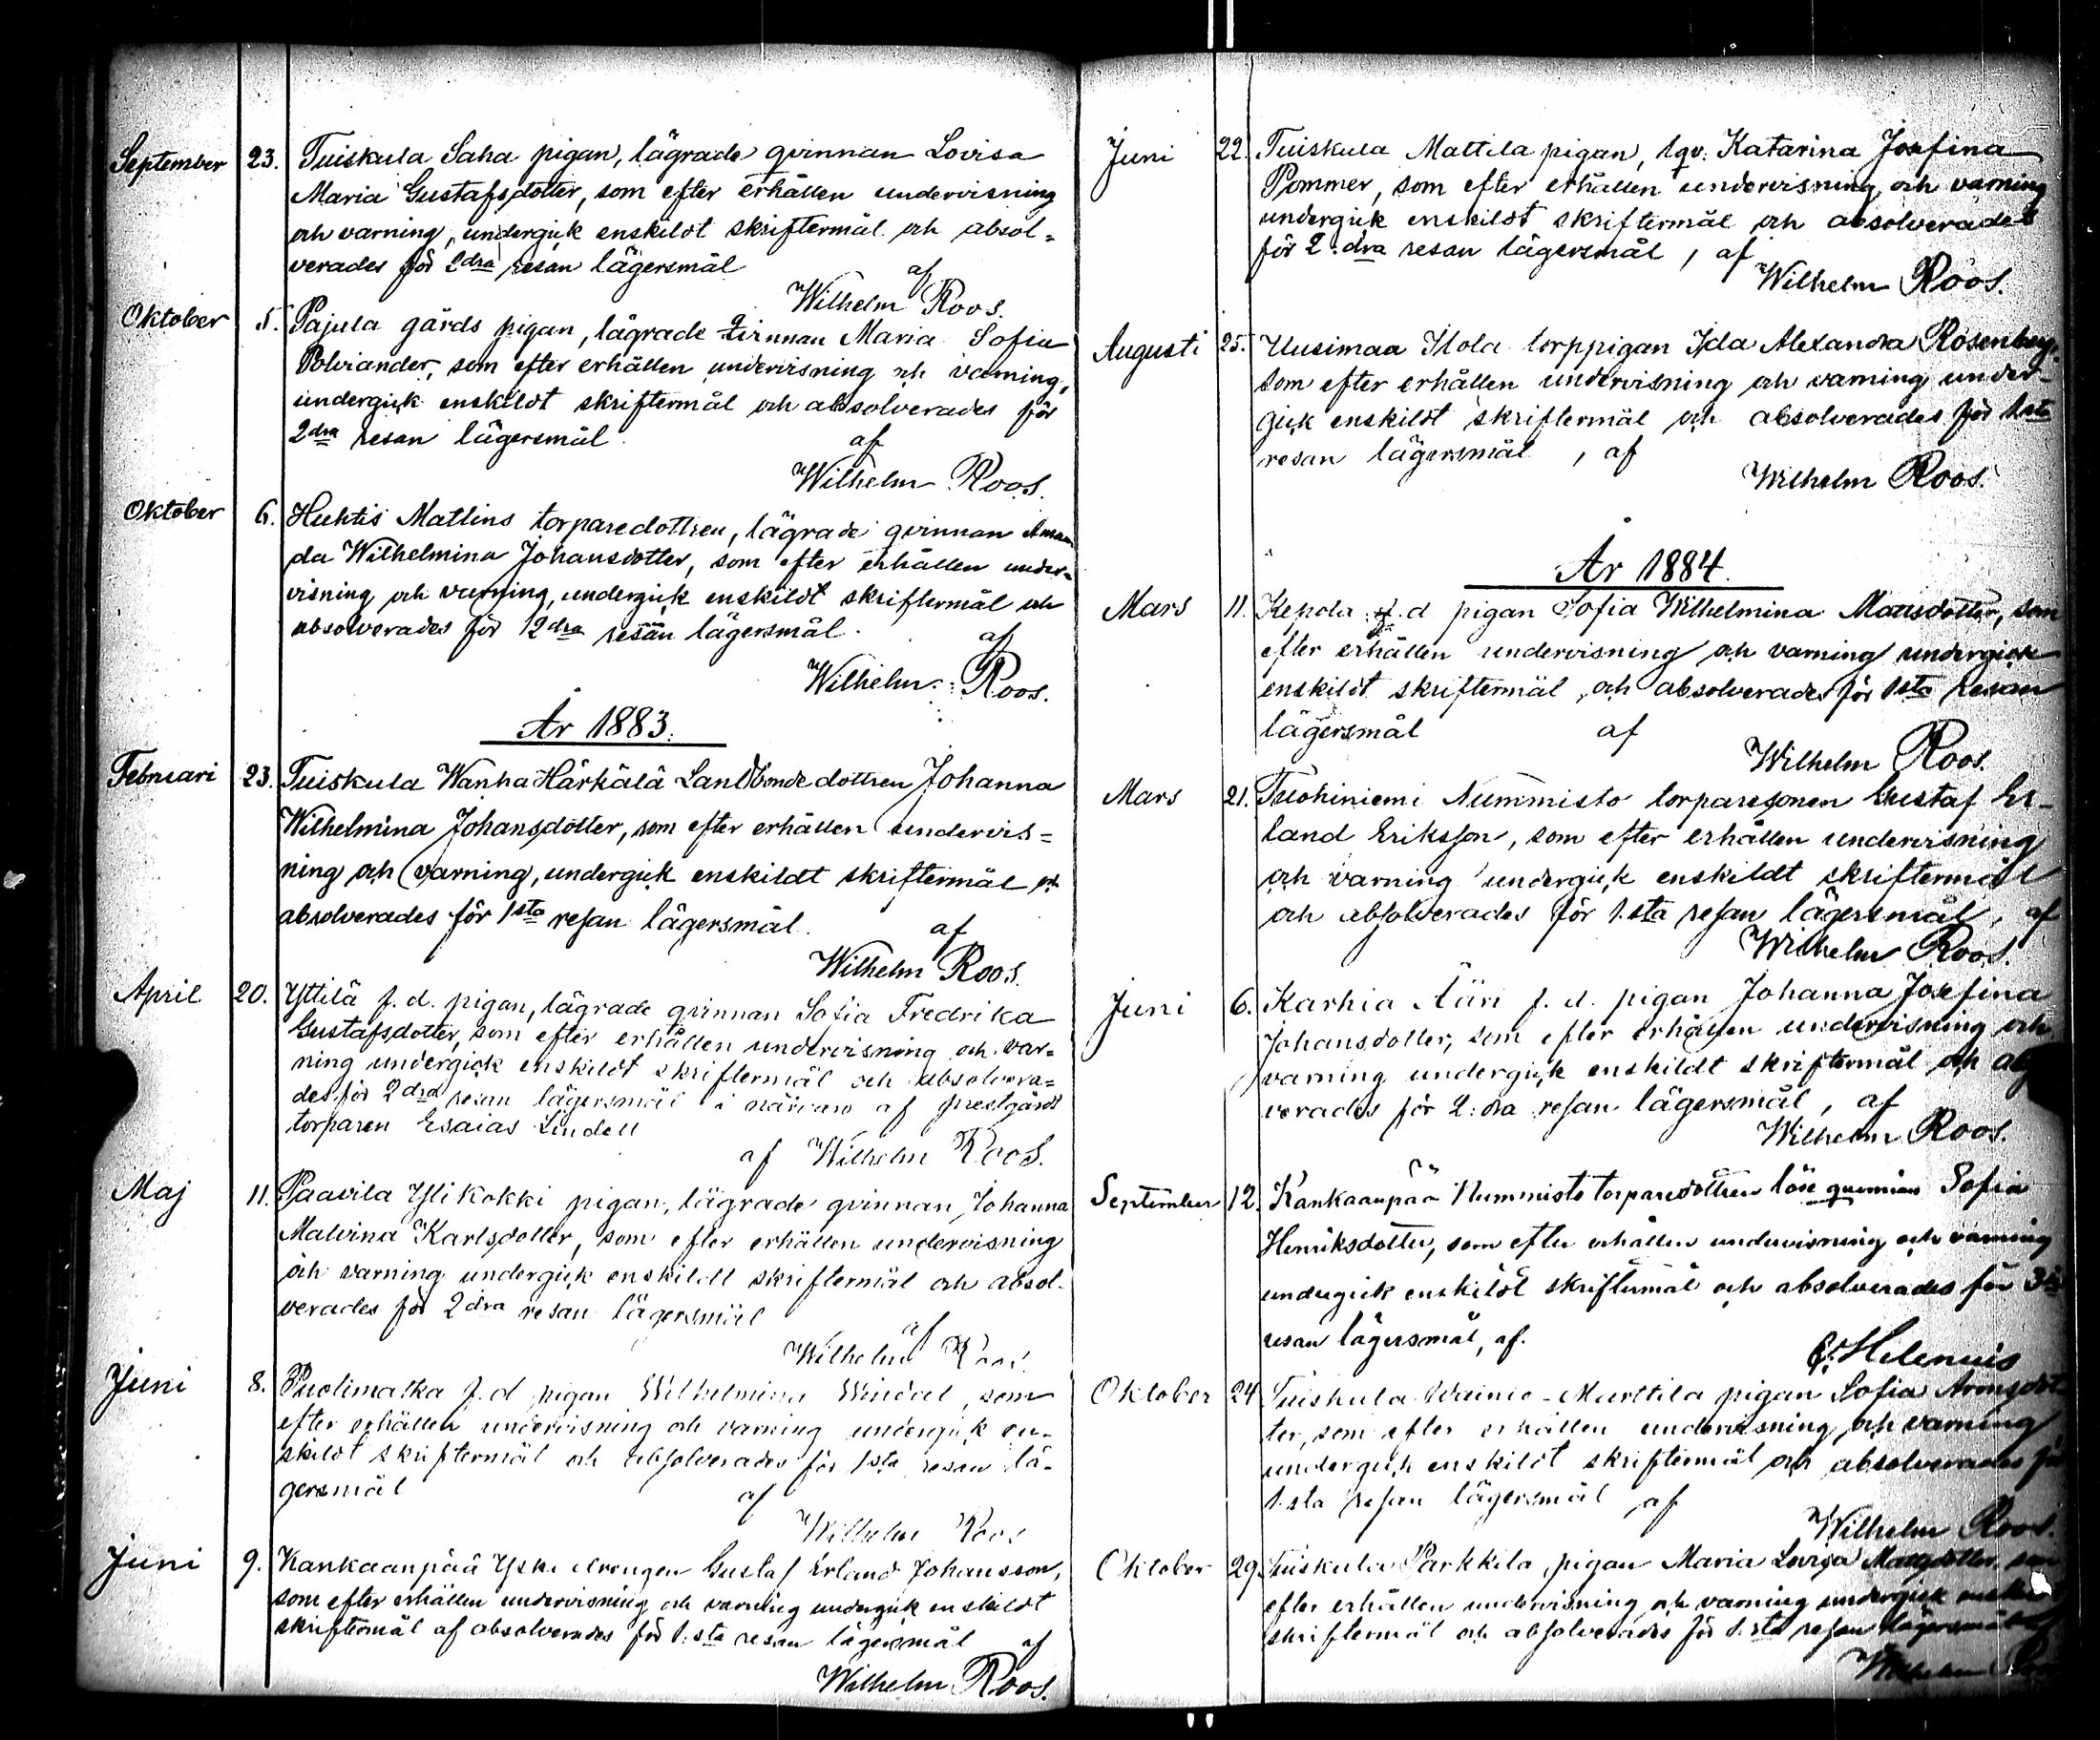 September 23. Tuiskula Saha pigan, lägrade qvinnan Lovisa
Maria Gustafsdotter, som efter erhållen undervisning
och varning, undergick enskildt skriftermål och absol=
verades för 2dra resan lägersmål
af
Wilhelm Roos.
Oktober 5. Pajula gårds pigan, lägrade qvinnan Maria Sofia
Polviander, som efter erhållen undervisning och varning,
undergick enskildt skriftermål och absolverades för
2dra resan lägersmål
af
Wilhelm Roos.
Oktober 6. Huhtis Mattins torparedottren, lägrade qvinnan Aman
da Wilhelmina Johansdotter, som efter erhållen under=
visning och varning, undergick enskildt skriftermål och
absolverades för 2dra resan lägersmål.
af
Wilhelm Roos.
År 1883.
Februari 23. Tuiskula Wanha Härkälä Landbondedottren Johanna
Wilhelmina Johansdotter, som efter erhållen undervis=
ning och varning, undergick enskildt skriftermål och
absolverades för 1sta resan lägersmål.
af
Wilhelm Roos.
April 20. Yttilä f.d. pigan, lägrade qvinnan Sofia Fredrika
Gustafsdotter, som efter erhållen undervisning och var=
ning undergick enskildt skriftermål och absolvera=
des för 2dra resan lägersmål i närvaro af prestgårds
torparen Esaias Lindell
af Wilhelm Roos.
Maj 11. Paavila Ylikokki pigan, lägrade qvinnan Johanna
Malvina Karlsdotter, som efter erhållen undervisning
och varning undergick enskildt skriftermål och absol-
verades för 2dra resan lägersmål
af
Wilhelm Roos.
Juni 8. Puolimatka f.d. pigan Wilhelmina Windal, som
efter erhållen undervisning och varning undergick en-
skildt skriftermål och absolverades för 1sta resan lä-
gersmål
af
Wilhelm Roos
Juni 9. Kankaanpää drengen Gustaf Erland Johansson,
som efter erhållen undervisning och varning undergick enskildt
skriftermål af absolverades för 1:sta resan lägersmål af
Wilhelm Roos.
Juni 22. Tuiskula Mattila pigan, lqv. Katarina Josefina
Pommer, som efter erhållen undervisning och varning
undergick enskildt skriftermål och absolverades
för 2:dra resan lägersmål, af
Wilhelm Roos.
Augusti 25. Uusimaa Ilola torppigan Ida Alexandra Rosenberg,
som efter erhållen undervisning och varning under-
gick enskildt skriftermål och absolverades för 1sta
resan lägersmål, af
Wilhelm Roos.
År 1884.
Mars 11. Kepola f.d pigan Sofia Wilhelmina Mansdotter, som
efter erhållen undervisning och varning undergick
enskildt skriftermål och absolverades för 1sta resan
lägersmål af
Wilhelm Roos.
Mars 21. Tuohiniemi Nummisto torparesonen Gustaf Er-
land Eriksson, som efter erhållen undervisning
och varning undergick enskildt skriftermål
och absolverades för 1.sta resan lägersmål, af
Wilhelm Roos.
Juni 6. Karhia Ääri f.d. pigan Johanna Josefina
Johansdotter, som efter erhållen undervisning och
varning undergick enskildt skriftermål och
verades för 2:dra resan lägersmål, af
Wilhelm Roos.
September 12. Kankaanpää Nummisto torparedottren löse qvinnan Sofia
Henriksdotter, som efter erhållen undervisning och varning
undergick enskildt skriftermål och absolverades för
resan lägersmål, af.
Helenius
Oktober 24. Tuiskula Wainio-Marttila pigan Sofia
ter, som efter erhållen undervisning och varning
undergick enskildt skriftermål och absolverades för
1.sta resan lägersmål af
Wilhelm Roos.
Oktober 29. Tuiskula Parkkila pigan Maria Lovisa
efter erhållen undervisning och varning undergick
skriftermål och absolverades för 1.sta resan lägersmål
Wilhelm